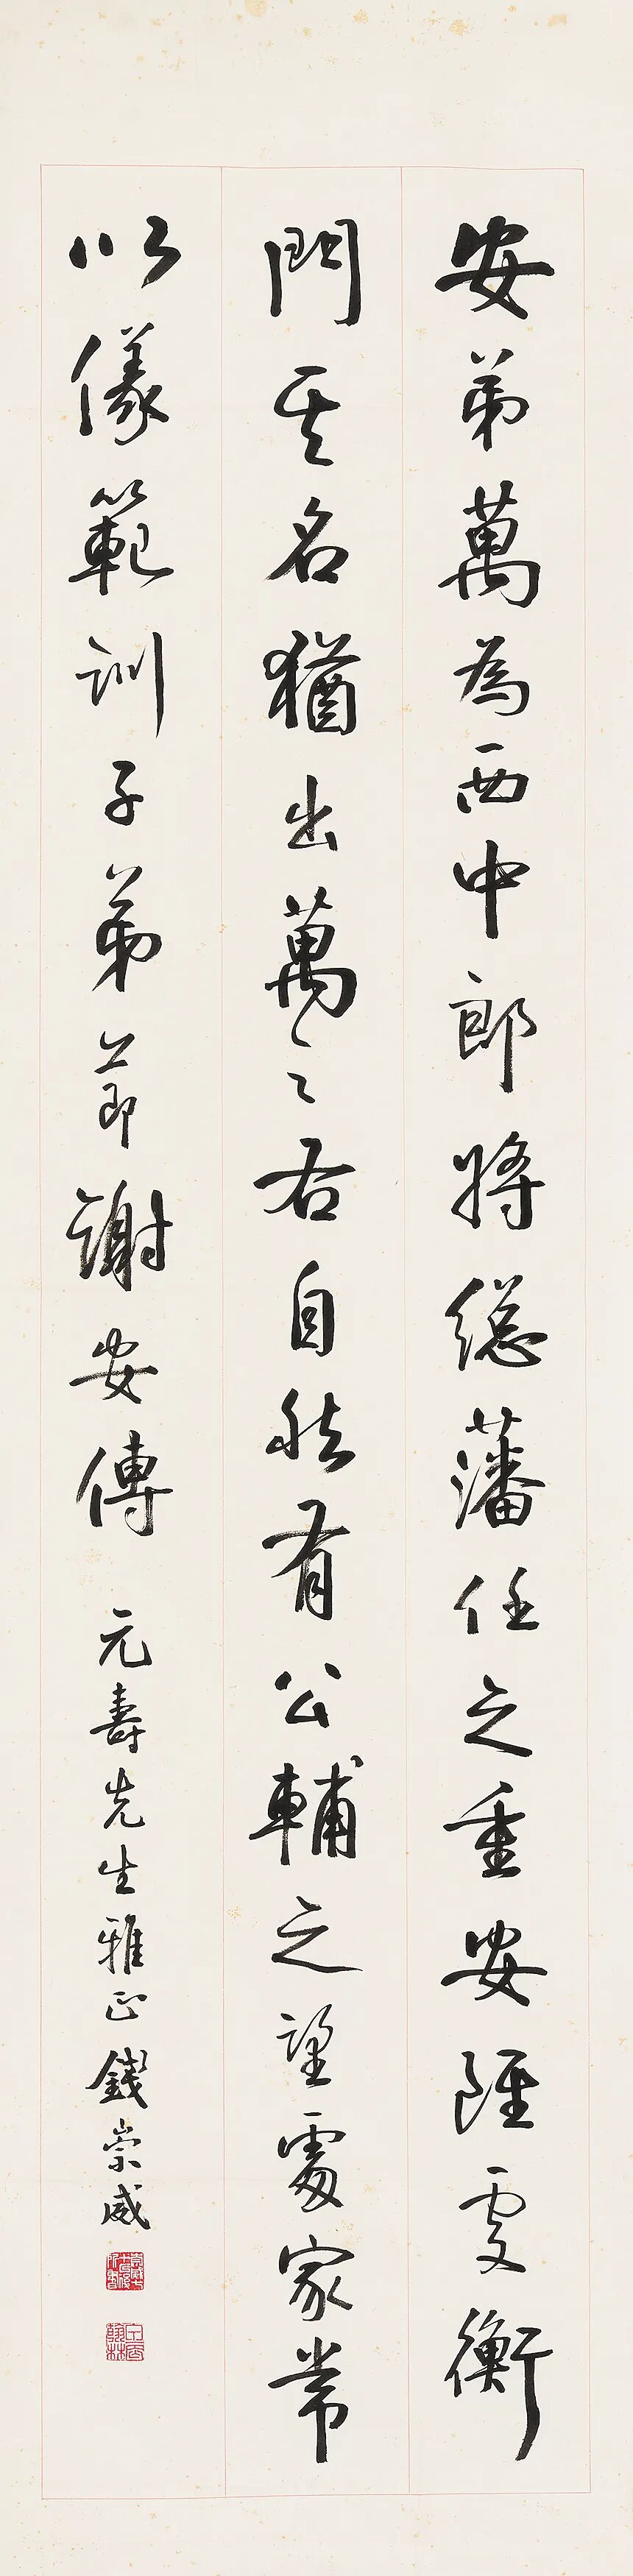 安弟萬為西中郎將總藩任之重安雖處衡
門其名猶出萬之右自然有公輔之望處家常
以儀範訓子弟 節謝安傳 元壽先生雅正 錢崇威